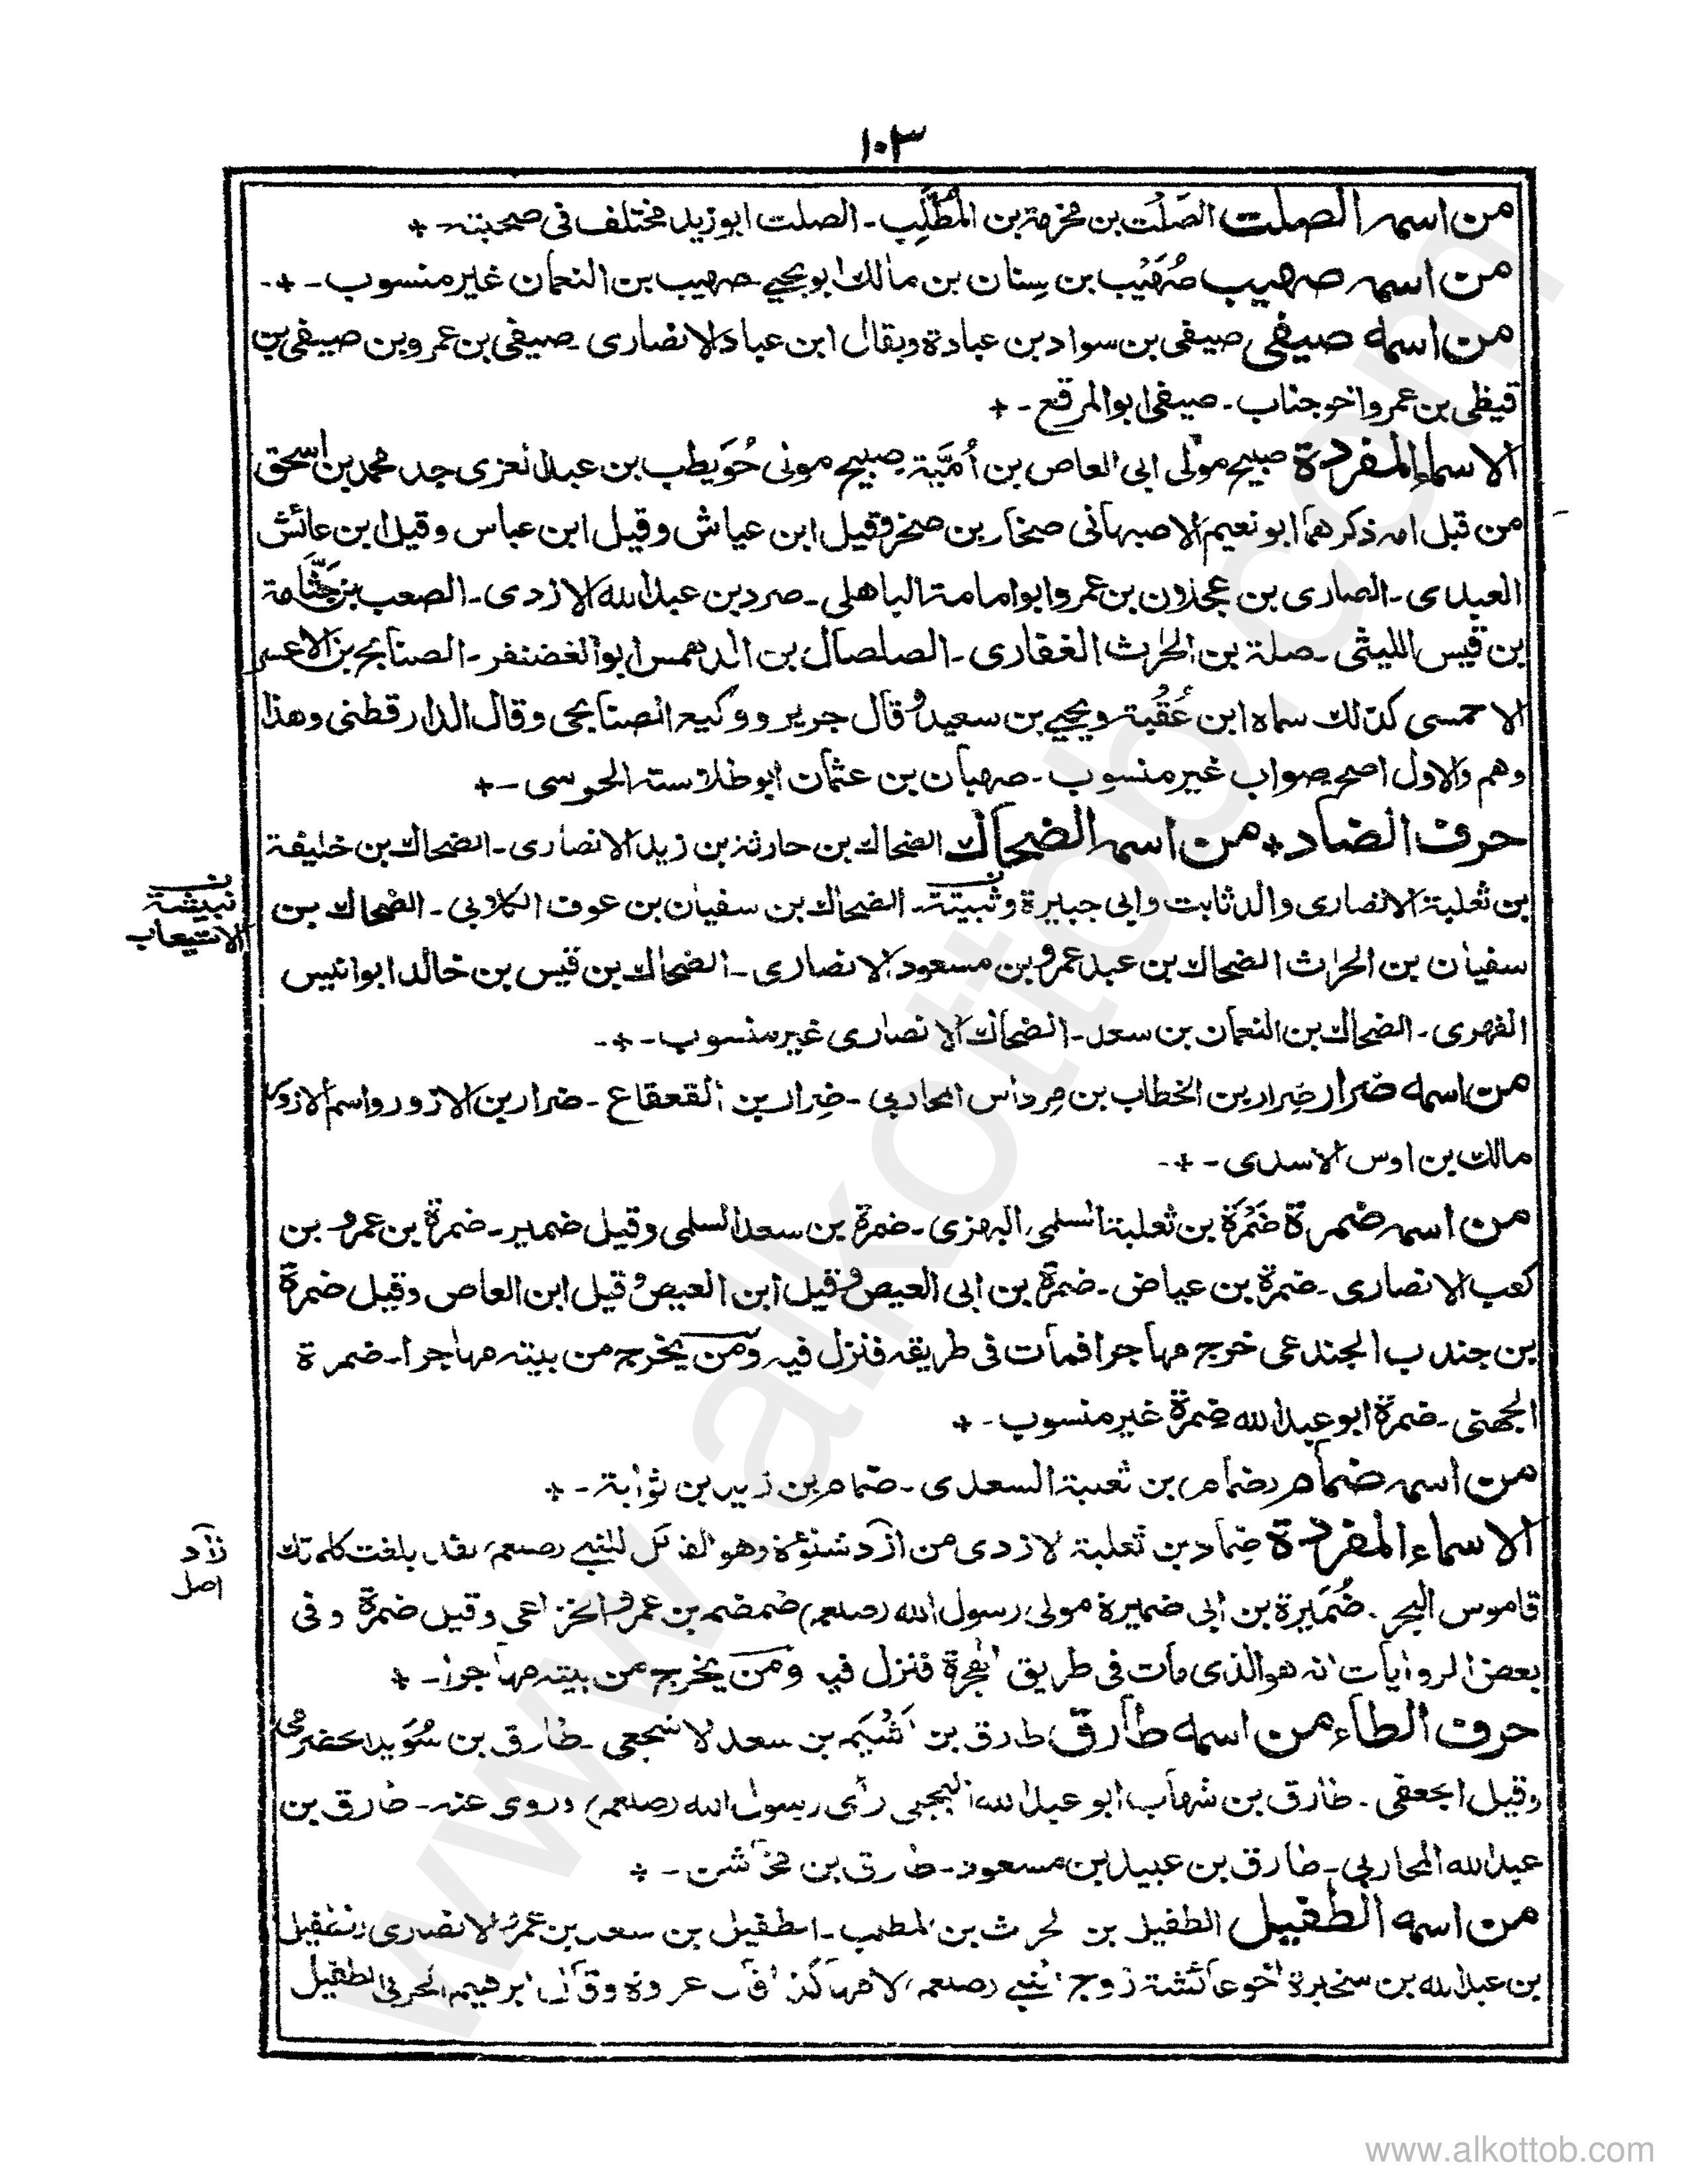 ١٠٣
من اسمه الصلت الصَلْت بن مخرمة بن المُطَّلِب ـ الصلت ابوزيد مختلف فى صحبته ـ +
من اسمه صهيب صُهَيْب بن سِنان بن مالك ابو يحيى ـ صهيب بن النعمان غير منسوب ـ + ـ
من اسمه صيفى صيفى بن سواد بن عبادة ويقال ابن عباد الانصارى ـ صيفى بن عمرو بن صيفى بن
قيظى بن عمرو اخو جناب ـ صيفى ابو المرقع ـ +
الاسماء المفردة صبيح مولى ابى العاص بن اُمَيَّة ـ صبيح مولى حُوَيطب بن عبد العزى جد محمد بن اسحق
من قبل امه ذكرهما ابو نعيم الاصبهانى صحار بن صخر وقيل ابن عياش وقيل ابن عباس وقيل ابن عائش
العبدى ـ الصارى بن عجلان بن عمرو ابو امامة الباهلى ـ صرد بن عبد الله الازدى ـ الصعب بن جَثَّامة
بن قيس الليثى ـ صلة بن الحرث الغفارى ـ الصلصال بن الدلهمس ابو الغضنفر ـ الصنابح بن الاعسر
الاحمسى كذلك سماه ابن عُقْبة ويحيى بن سعيد وقال جرير ووكيع الصنابحى وقال الدارقطنى وهذا
وهم والاول اصح صواب غير منسوب ـ صهبان بن عثمان ابو طلاسة الحرسى ـ +
حرف الضاد + من اسمه الضحاك الضحاك بن حارثة بن زيد الانصارى ـ الضحاك بن خليفة
بن ثعلبة الانصارى والد ثابت وابى جبيرة وثبيتة ـ الضحاك بن سفيان بن عوف الكلابى ـ الضحاك بن
نبيشة
الاستيعاب
سفيان بن الحرث الضحاك بن عبد عمرو بن مسعود الانصارى ـ الضحاك بن قيس بن خالد ابو انيس
الفهرى ـ الضحاك بن النعمان بن سعد ـ الضحاك الانصارى غير منسوب ـ + ـ
من اسمه ضرار ضِرار بن الخطاب بن مِرداس المحاربى ـ ضِرار بن القعقاع ـ ضرار بن الازور واسم الازور
مالك بن اوس الاسدى ـ + ـ
من اسمه ضمرة ضَمْرَة بن ثعلبة السلمى البهزى ـ ضمرة بن سعد السلمى وقيل ضمير ـ ضمرة بن عمرو بن
كعب الانصارى ـ ضمرة بن عياض ـ ضمرة بن ابى العيص وقيل ابن العيص وقيل ابن العاص وقيل ضمرة
بن جندب الجندعى خرج مهاجرا فمات فى طريقه فنزل فيه ومن يخرج من بيته مهاجرا ـ ضمرة
الجهنى ـ ضمرة ابو عبد الله ضمرة غير منسوب ـ +
من اسمه ضمام (ضمام) بن ثعلبة السعدى ـ ضمام بن زيد بن ثوابة ـ +
الاسماء المفردة ضِماد بن ثعلبة الازدى من ازد شنوءة وهو القائل للنبى (صلعم) لقد بلغت كلماتك
زاد
اصل
قاموس البحر ـ ضُمَيرة بن ابى ضميرة مولى رسول الله (صلعم) ضمضم بن عمرو الخزاعى وقيل ضمرة وفى
بعض الروايات انه هو الذى مات فى طريق الهجرة فنزل فيه ومن يخرج من بيته مهاجرا ـ +
حرف الطاء من اسمه طارق طارق بن اَشْيَم بن سعد الاشجعى ـ طارق بن سُوَيد الحضرمى
وقيل الجعفى ـ طارق بن شهاب ابو عبد الله البجلى رأى رسول الله (صلعم) وروى عنه ـ طارق بن
عبد الله المحاربى ـ طارق بن عبيد بن مسعود ـ طارق بن مخاشن ـ +
من اسمه الطفيل الطفيل بن الحرث بن المطلب ـ الطفيل بن سعد بن عمرو الانصارى الطفيل
بن عبد الله بن سخبرة اخو عائشة زوج النبى (صلعم) لامها كذا قال عروة وقال ابرهيم الحربى الطفيل
www.alkottob.com
www.alkottob.com